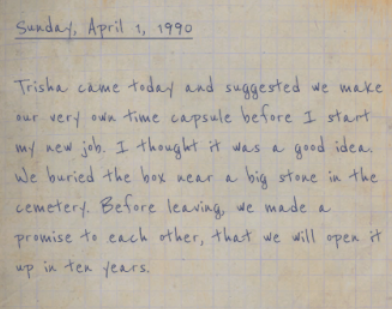 Sunday, April 1, 1990
Trisha came today and suggested we make
our very own time capsule before I start
my new job. I thought it was a good idea.
We buried the box near a big stone in the
cemetery. Before leaving, we made a
promise to each other, that we will open it
up in ten years.